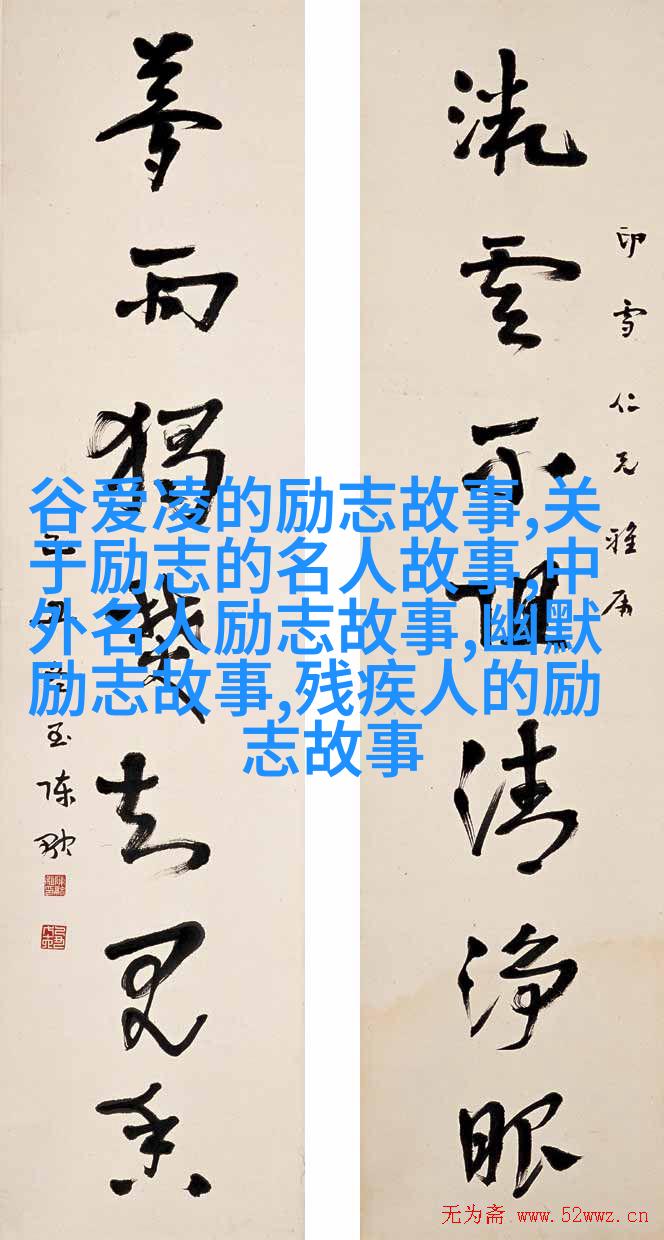 谷爱凌的励志故事,关
于励志的名人故事,中
外名人励志故事,幽默
励志故事,残疾人的励
志故事
印雪仁兄雅屬
流雲不清淨眼
夢雨獨見香
陳
无为斋 www.52wwz.cn